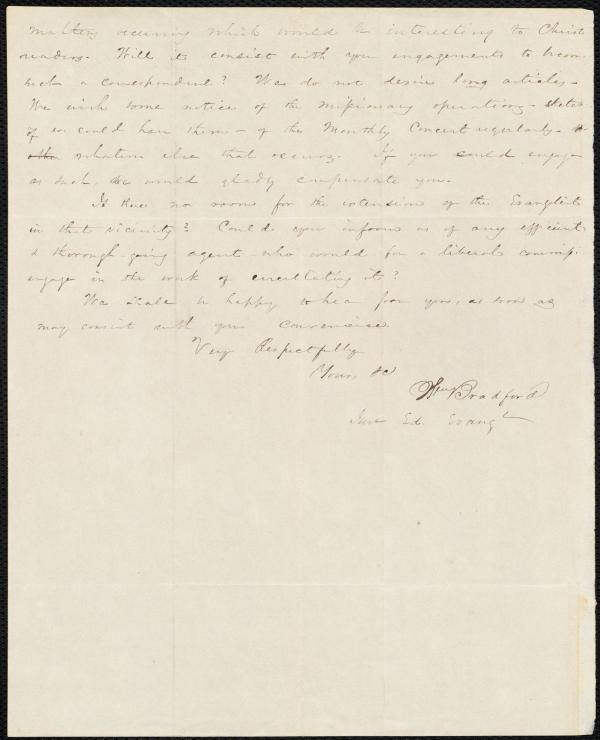 matters occurring which would be interesting to Christ.
readers. Will it consist with your engagements to becom
such a correspondent? We do not desire long articles –
We wish some notice of the missionary operations – sketch
if we could have them – of the Monthly Concert regularly –
whatever else that occurs. If you could engage
as such, we would gladly compensate you.
Is there no room for the extension of the Evangelist
in that vicinity? Could you inform us of any efficient
& thorough-going agent – who would for a liberal commis.
engage in the work of circulating it?
We shall be happy to hear from you, as soon as
may consist with your convenience.
Very Respectfully
Yours &c
Wm Bradford
Ed. Evangt